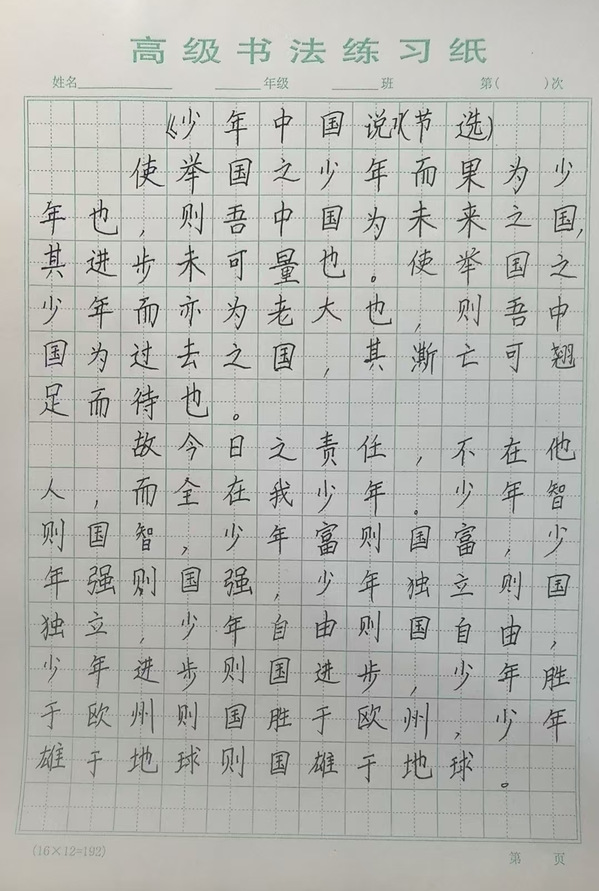 高级书法练习纸
姓名 年级 班 第( )次
《少年中国说》(节选)
使举国之少年而果为少
年也，则吾中国为未来之国，
其进步未可量也。使举国之
少年而亦为老大也，则吾中
国为过去之国，其澌亡可翘
足而待也。
故今日之责任，不在他
人，而全在我少年。少年智
则国智，少年富则国富，少
年强则国强，少年独立则国
独立，少年自由则国自由，
少年进步则国进步，少年胜
于欧州则国胜于欧州，少年
雄于地球则国雄于地球。
(16×12=192) 第 页